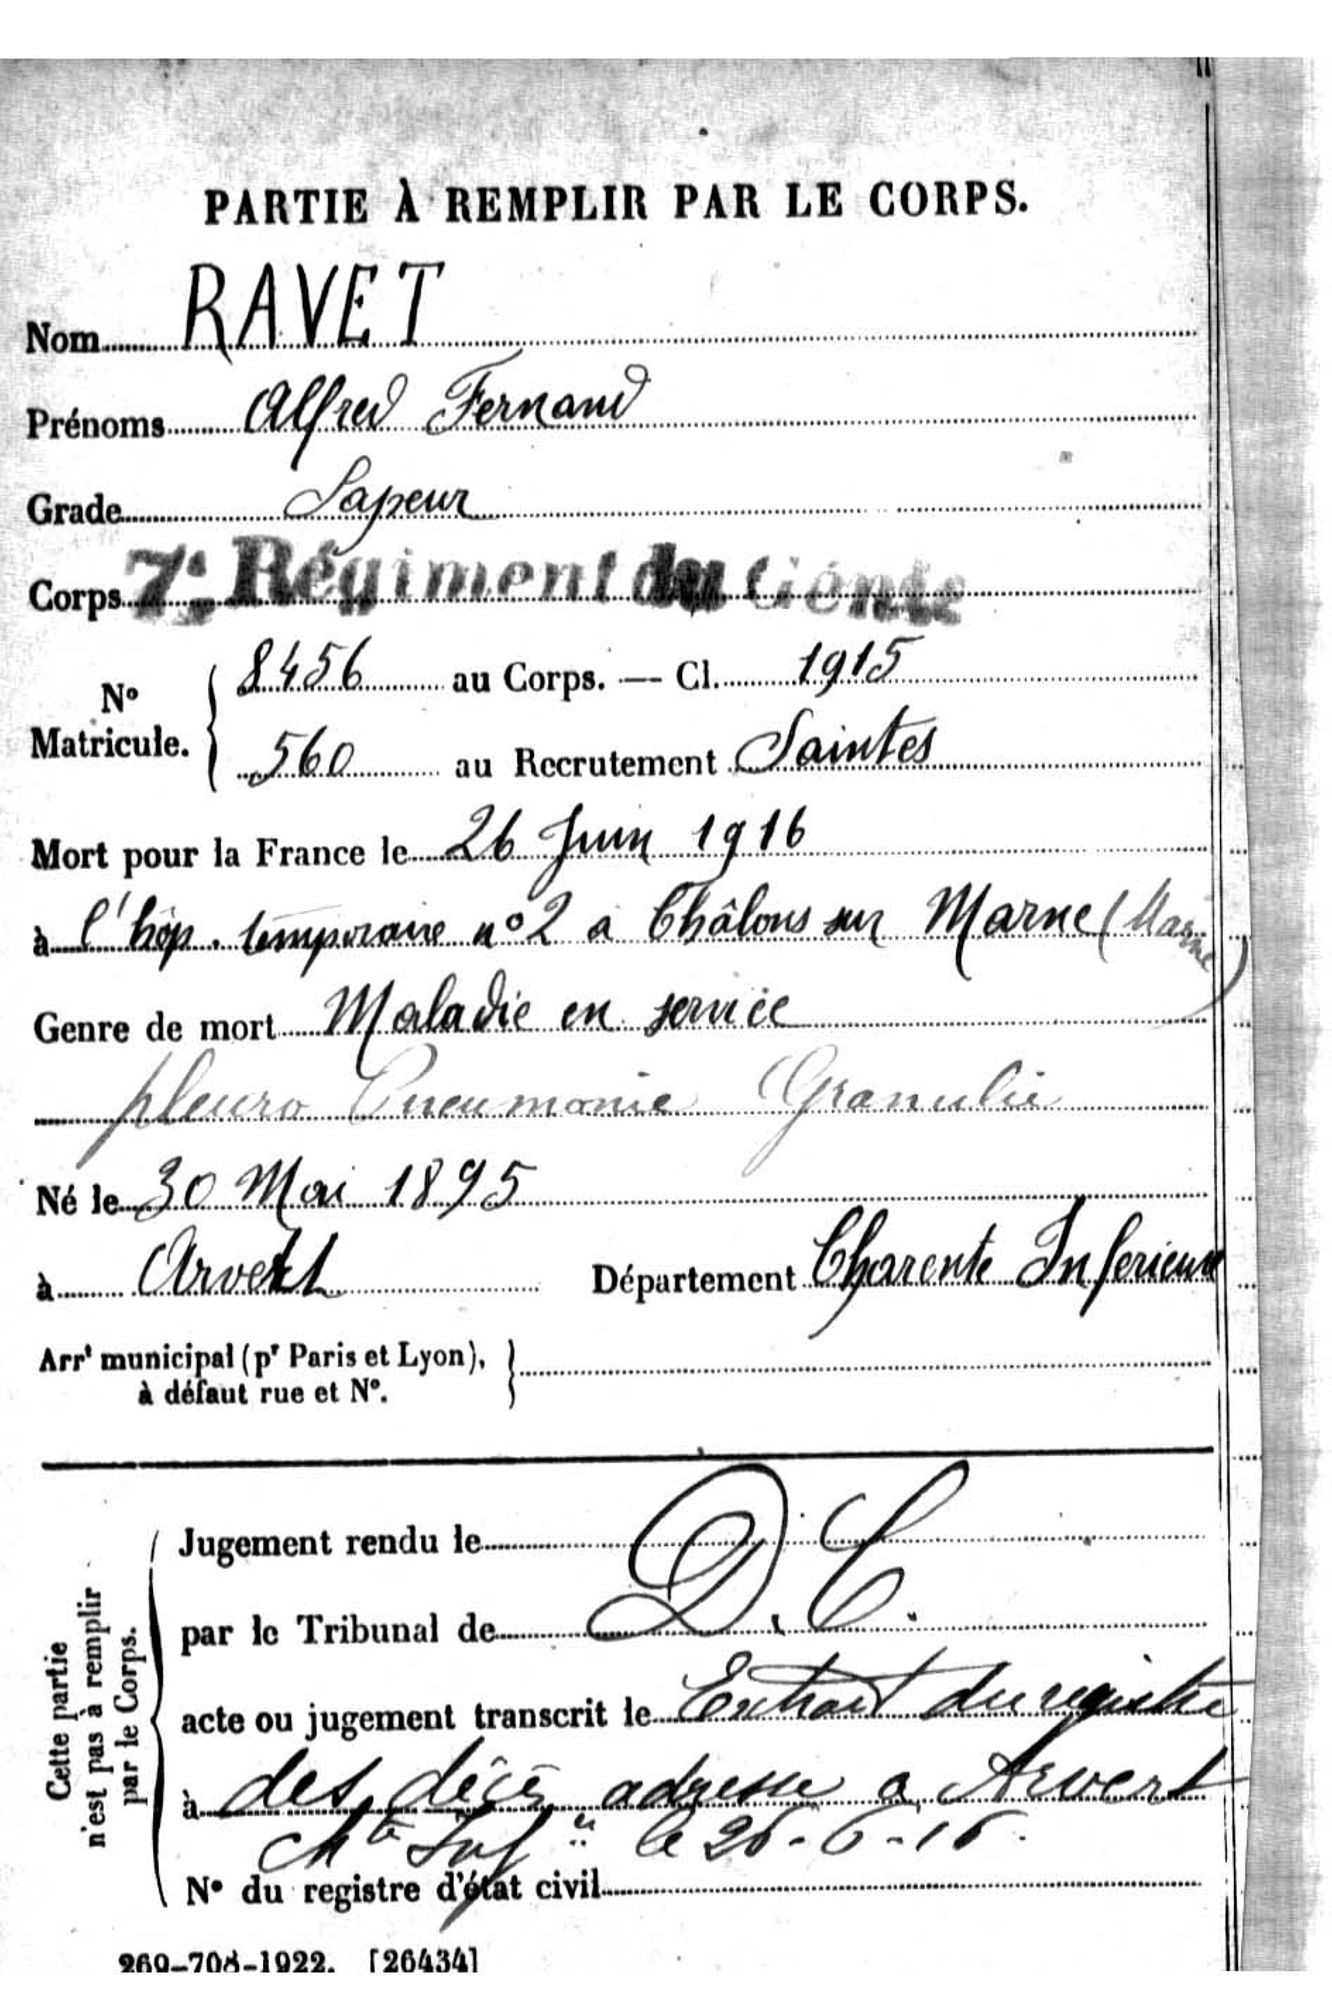 PARTIE À REMPLIR PAR LE CORPS.
Nom RAVET
Prénoms Alfred Fernand
Grade Sapeur
Corps 7e Régiment du Génie
No Matricule. { 8456 au Corps. — Cl. 1915
560 au Recrutement Saintes
Mort pour la France le 26 Juin 1916
à l'hôp. temporaire no 2 à Châlons sur Marne (Marne)
Genre de mort Maladie en service
pleuro Pneumonie Granulie
Né le 30 Mai 1895
à Arvert Département Charente Inferieure
Arrt municipal (pr Paris et Lyon), }
à défaut rue et No.
Cette partie n'est pas à remplir par le Corps.
Jugement rendu le D.C.
par le Tribunal de
acte ou jugement transcrit le Extrait du registre
à des décès adresse a Arvert
Chte Infre le 26-6-16.
No du registre d'état civil
269-708-1922. [26434]